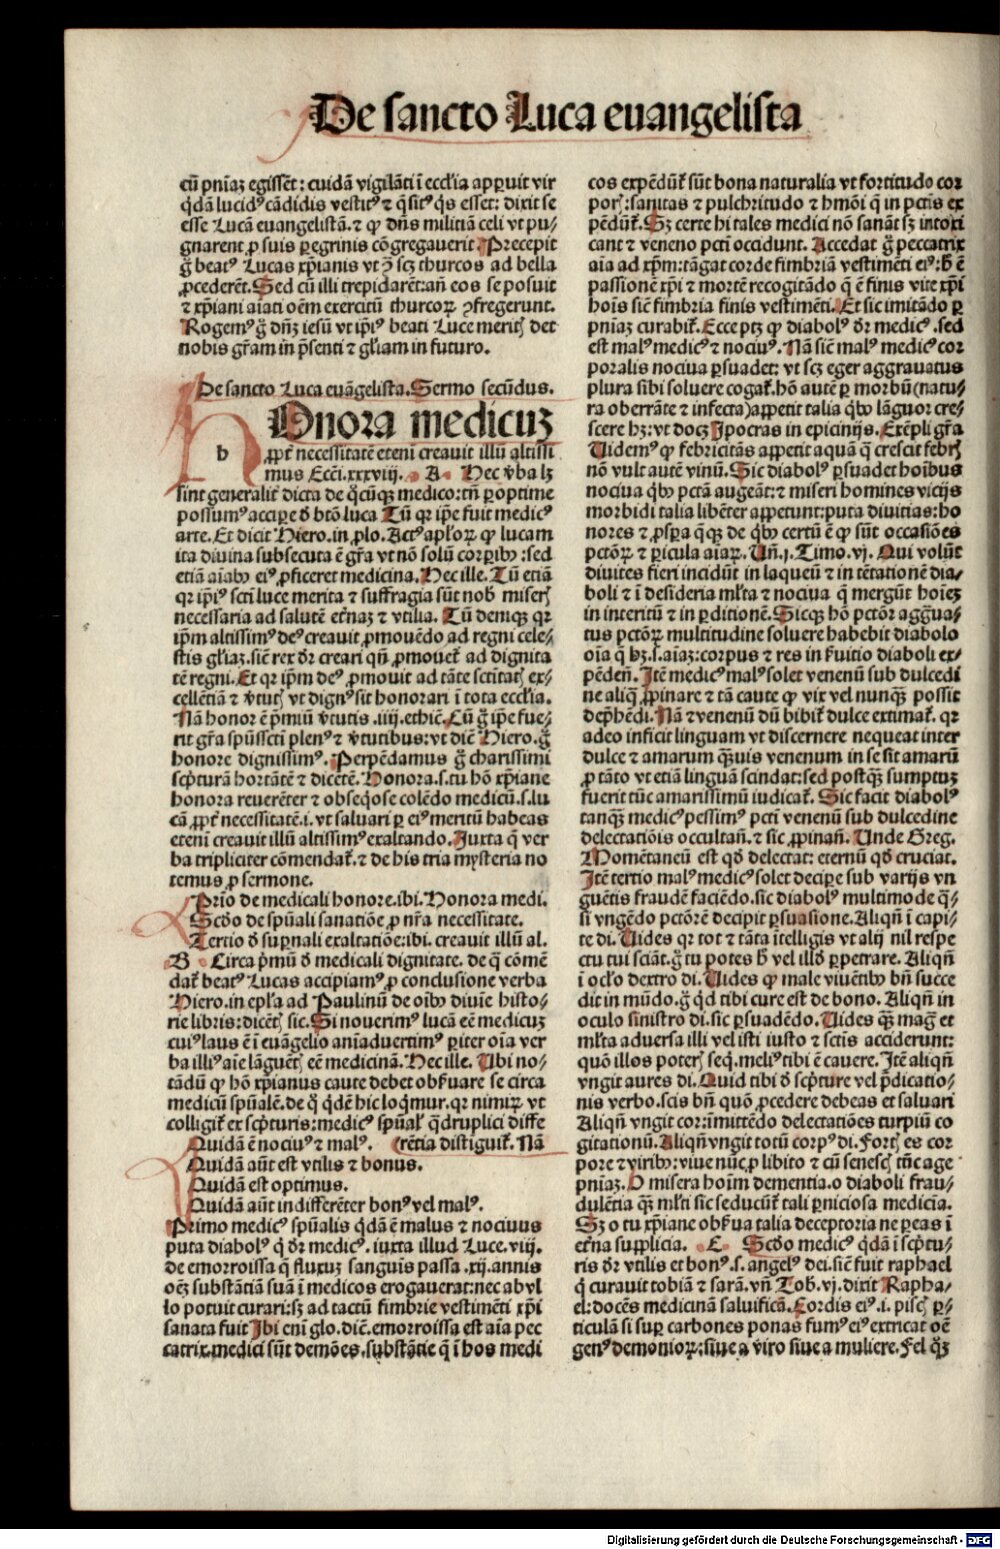 De sancto Luca euangelista
cū pn̄iaꝫ egissēt: cuidā vigilāti ī ecclīa apꝑuit vir
q̇dā lucid⁹ cādidis vestit⁹ ⁊ q̄sit⁹ q̇s esset: dixit se
esse Lucā euangelistā. ⁊ ꝙ dn̄s militiā celi vt pu-
gnarent ꝓ suis ꝑegrinis cōgregauerit. Precepit
g̊ beat⁹ Lucas xp̄ianis vt ꝯ̄ scꝫ thurcos ad bella
ꝓcederēt. Sed cū illi trepidarēt: an̄ eos se posuit
⁊ xp̄iani aīati oēm exercitū thurcoꝝ ꝯfregerunt.
Rogem⁹ g̊ dn̄ꝫ iesū vt ip̄i⁹ beati Luce meritꝭ det
nobis gr̄am in p̄senti ⁊ gl̄iam in futuro.
De sancto Luca euāgelista. Sermo secūdus.
Honora medicuꝫ
h
ꝓpt̄ necessitatē etenī creauit illū altissi
mus Ecci. xxxviij. A Hec v̄ba lꝫ
sint generalit̄ dicta de q̊cūqꝫ medico: tn̄ ꝑoptime
possum⁹ accipe ď bt̄o luca Tū qꝛ ip̄e fuit medic⁹
arte. Et dicit Hiero. in ꝓlo. Act⁹ apl̄oꝝ ꝙ lucam
ita diuina subsecuta ē gr̄a vt nō solū corꝑibꝫ: sed
etiā aīabꝫ ei⁹ ꝓficeret medicina. Hec ille. Tū etiā
qꝛ ip̄i⁹ sct̄i luce merita ⁊ suffragia sūt nob̄ miserꝭ
necessaria ad salutē et̄naꝫ ⁊ vtilia. Tū deniqꝫ qꝛ
ip̄m altissim⁹ de⁹ creauit ꝓmouēdo ad regni cele-
stis gl̄iaꝫ. sic̄ rex dr̄ creari qn̄ ꝓmouet̄ ad dignita
tē regni. Et qꝛ ip̄m de⁹ ꝓmouit ad tātē sctītatꝭ ex-
cellētiā ⁊ v̄tutꝭ vt dign⁹ sit honorari ī tota ecclīa.
Nā honor ē p̄miū v̄tutis. iiij. ethic̄. Cū g̊ ip̄e fue-
rit gr̄a sp̄ussct̄i plen⁹ ⁊ v̄tutibus: vt dic̄ Hiero. g̊
honore dignissim⁹. Perpēdamus g̊ charissimi
sc̄pturā hortātē ⁊ dicētē. Honora. s. tu hō xp̄iane
honora reuerēter ⁊ obseq̇ose colēdo medicū. s. lu
cā ꝓpt̄ necessitatē. i. vt saluari ꝑ ei⁹ meritū habeas
etenī creauit illū altissim⁹ exaltando. Juxta q̄ ver
ba tripliciter cōmendat̄. ⁊ de his tria mysteria no
temus ꝓ sermone.
Prīo de medicali honore. ibi. Honora medi.
Scd̄o de sp̄uali sanatiōe ꝓ nr̄a necessitate.
Tertio ď suꝑnali exaltatiōe: ibi. creauit illū al.
B Circa p̄mū ď medicali dignitate. de q̄ cōmē
dat̄ beat⁹ Lucas accipiam⁹ ꝓ conclusione verba
Hiero. in epl̄a ad Paulinū de oībꝫ diuīe histo-
rie libris: dicētꝭ sic. Si nouerim⁹ lucā eē medicuꝫ
cui⁹ laus ē ī euāgelio anīaduertim⁹ ꝑiter oīa ver
ba illi⁹ aīe lāguētꝭ eē medicinā. Hec ille. Ubi no-
tādū ꝙ hō xp̄ianus caute debet obẜuare se circa
medicū sp̄ualē. de q̊ q̇dē hic loq̇mur. qꝛ nimiꝝ vt
colligit̄ ex sc̄pturis: medic⁹ sp̄ual̄ q̇druplici diffe
Quidā ē nociu⁹ ⁊ mal⁹. (rētia distiguit̄. Nā
Quidā aūt est vtilis ⁊ bonus.
Quidā est optimus.
Quidā aūt indifferēter bon⁹ vel mal⁹.
Primo medic⁹ sp̄ualis q̇dā ē malus ⁊ nociuus
puta diabol⁹ q̇ dr̄ medic⁹. iuxta illud Luce. viij.
de emorroissa q̄ fluxuꝫ sanguīs passa. xij. annis
oēꝫ substātiā suā ī medicos erogauerat: nec ab vl
lo potuit curari: sꝫ ad tactū fimbrie vestimēti xp̄i
sanata fuit Ibi enī glo. dic̄. emorroissa est aīa pec
catrix. medici sūt demōes. substātie q̄ ī hos medi
cos expēdūt̄ sūt bona naturalia vt fortitudo cor
porꝭ: sanitas ⁊ pulchritudo ⁊ hmōi q̄ in pctīs ex
pēdūt̄. Sꝫ certe hi tales medici nō sanāt sꝫ intoxi
cant ⁊ veneno pctī occidunt. Accedat g̊ peccatrix
aīa ad xp̄m: tāgat corde fimbriā vestimēti ei⁹: h̄ ē
passionē xp̄i ⁊ mortē recogitādo q̄ ē finis vite xp̄i
hoīs sic̄ fimbria finis vestimēti. Et sic imitādo ꝑ
pn̄iaꝫ curabit̄. Ecce ptꝫ ꝙ diabol⁹ dr̄ medic⁹. sed
est mal⁹ medic⁹ ⁊ nociu⁹. Nā sic̄ mal⁹ medic⁹ cor
poralis nociua ꝑsuadet: vt scꝫ eger aggrauatus
plura sibi soluere cogat̄. hō autē ꝑ morbū (natu-
ra oberrāte ⁊ infecta) appetit talia q̇bꝫ lāguor cre-
scere hꝫ: vt docꝫ Ipocras in epicinijs. Exēpli gr̄a
Uidem⁹ ꝙ febricitās appetit aquā q̄ crescit febrꝭ
nō vult autē vinū. Sic diabol⁹ ꝑsuadet hoībus
nociua q̇bꝫ pctā augeāt: ⁊ miseri homines vicijs
morbidi talia libēter appetunt: puta diuitias: ho
nores ⁊ ꝓsꝑa q̄qꝫ de q̇bꝫ certū ē ꝙ sūt occasiōes
pctōꝝ ⁊ ꝑicula aīaꝝ. Un̄. j. Timo. vj. Qui volūt
diuites fieri incidūt in laqueū ⁊ in tētationē dia-
boli ⁊ ī desideria ml̄ta ⁊ nociua q̄ mergūt hoīeꝫ
in interitū ⁊ in ꝑditionē. Sicqꝫ hō pctōr aggrua-
tus pctōꝝ multitudine soluere habebit diabolo
oīa q̄ hꝫ. s. aīaꝫ: corpus ⁊ res in ẜuitio diaboli ex-
pēden̄. Itē medic⁹ mal⁹ solet venenū sub dulcedi
ne aliq̄ ꝓpinare ⁊ tā caute ꝙ vix vel nunqꝫ possit
dep̄hēdi. Nā ⁊ venenū dū bibit̄ dulce extimat̄. qꝛ
adeo inficit linguam vt discernere nequeat inter
dulce ⁊ amarum qꝫ̄uis venenum in se sit amarū
ꝓ tāto vt etiā linguā scindat: sed postqꝫ̄ sumptuꝫ
fuerit tūc amarissimū iudicat̄. Sic facit diabol⁹
tanqꝫ̄ medic⁹ pessim⁹ pctī venenū sub dulcedine
delectatiōis occultan̄. ⁊ sic ꝓpinan̄. Unde Greg.
Momētaneū est qd̄ delectat: eternū qd̄ cruciat.
Itē tertio mal⁹ medic⁹ solet decipe sub varijs vn
guētis fraudē faciēdo. sic diabol⁹ multimode q̄-
si vngēdo pctōrē decipit ꝑsuasione. Aliqn̄ ī capi-
te di. Uides qꝛ tot ⁊ tāta ītelligis vt alij nil respe
ctu tui sciāt. g̊ tu potes h̄ vel illd̄ ꝑpetrare. Aliqn̄
ī ocl̄o dextro di. Uides ꝙ male viuētibꝫ bn̄ succe
dit in mūdo. g̊ q̇d tibi cure est de bono. Aliqn̄ in
oculo sinistro di. sic ꝑsuadēdo. Uides qꝫ̄ mag̊ et
ml̄ta aduersa illi vel isti iusto ⁊ sctīs acciderunt:
quō illos poterꝭ seq̇. meli⁹ tibi ē cauere. Itē aliqn̄
vngit aures di. Quid tibi ď scp̄ture vel p̄dicatio-
nis verbo. scis bn̄ quō ꝓcedere debeas et saluari
Aliqn̄ vngit cor: īmittēdo delectatiōes turpiū co
gitationū. Aliqn̄ vngit totū corp⁹ di. Fortꝭ es cor
pore ⁊ viribꝫ: viue nūc ꝓ libito ⁊ cū senescꝭ tūc age
pn̄iaꝫ. O misera hoīm dementia. o diaboli frau-
dulētia qꝫ̄ ml̄ti sic seducūt̄ tali ꝑniciosa medicīa.
Sꝫ o tu xp̄iane obẜua talia deceptoria ne ꝑeas ī
et̄na supplicia. C Scd̄o medic⁹ q̇dā ī scp̄tu-
ris dr̄ vtilis et bon⁹. s. angel⁹ dei. sic̄ fuit raphael
q̇ curauit tobiā ⁊ sarā. vn̄ Tob. vj. dixit Rapha-
el: docēs medicinā saluificā. Cordis ei⁹. i. piscꝭ ꝑ-
ticulā si suꝑ carbones ponas fum⁹ ei⁹ extricat oē
gen⁹ demonioꝝ: siue a viro siue a muliere. Fel qꝫ̊
Digitalisierung gefördert durch die Deutsche Forschungsgemeinschaft - DFG